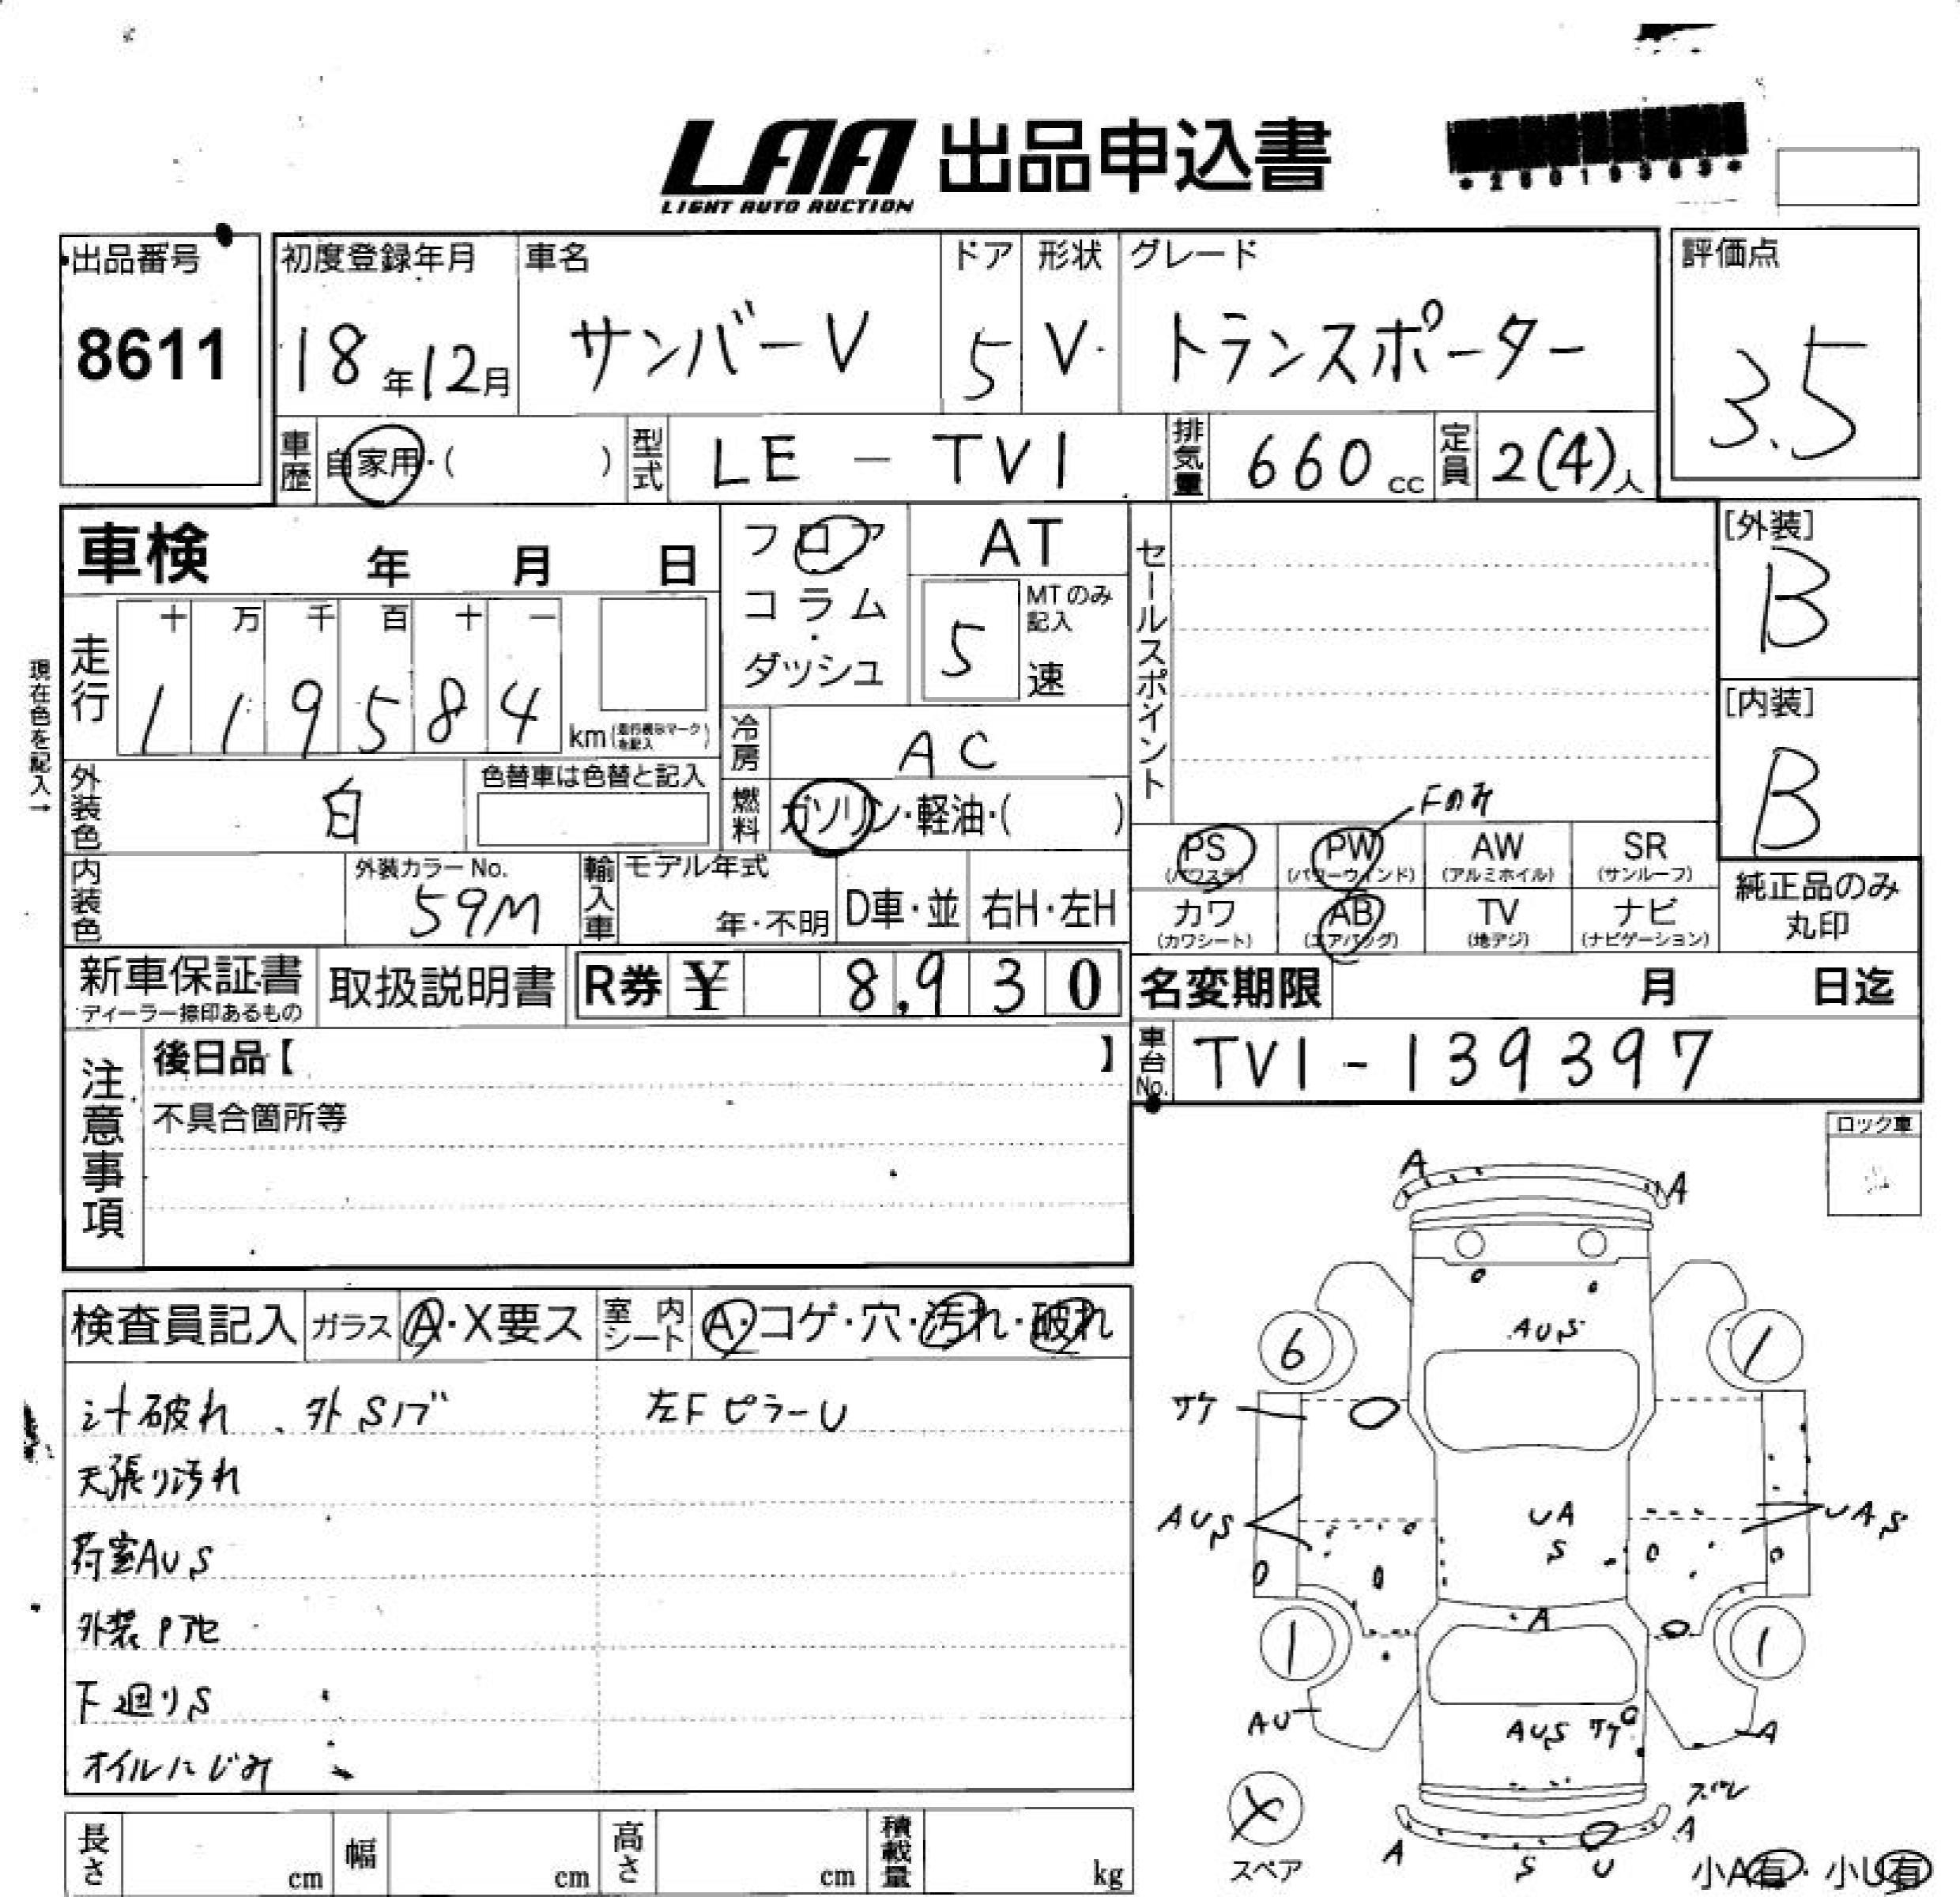 LAA 出品申込書
LIGHT AUTO AUCTION
出品番号
8611
初度登録年月
18年12月
車名
サンバーV
ドア
5
形状
V
グレード
トランスポーター
評価点
3.5
車歴 自家用・( )
型式 LE - TV1
排気量 660 cc
定員 2(4)人
車検 年 月 日
フロア
コラム
・
ダッシュ
AT
5 MTのみ記入 速
セールスポイント
[外装]
B
[内装]
B
現在色を記入→
走行
十 万 千 百 十 一
1 1 9 5 8 4 km
冷房 AC
外装色 白
色替車は色替と記入
燃料 ガソリン・軽油・( )
Fのみ
PS PW AW SR
(パワステ) (パワーウィンド) (アルミホイル) (サンルーフ)
カワ AB TV ナビ
(カワシート) (エアバッグ) (地デジ) (ナビゲーション)
純正品のみ
丸印
内装色
外装カラーNo.
59M
輸入車
モデル年式
年・不明
D車・並
右H・左H
新車保証書
ディーラー捺印あるもの
取扱説明書
R券 ¥ 8,930
名変期限 月 日迄
車台No. TV1-139397
注意事項
後日品【 】
不具合箇所等
ロック車
検査員記入
ガラス A・X要ス
室内シート A・コゲ・穴・汚れ・破れ
シート破れ、外Sノブ
左FピラーU
天張り汚れ
荷室AUS
外装Pアセ
下廻りS
オイルにじみ
A A
AUS
6 1
サケ
AUS
UA
S
UAS
A
1 1
AU
AUS サケ
A
ズレ
A S U A
スペア
小A有・小U有
長さ cm
幅 cm
高さ cm
積載量 kg